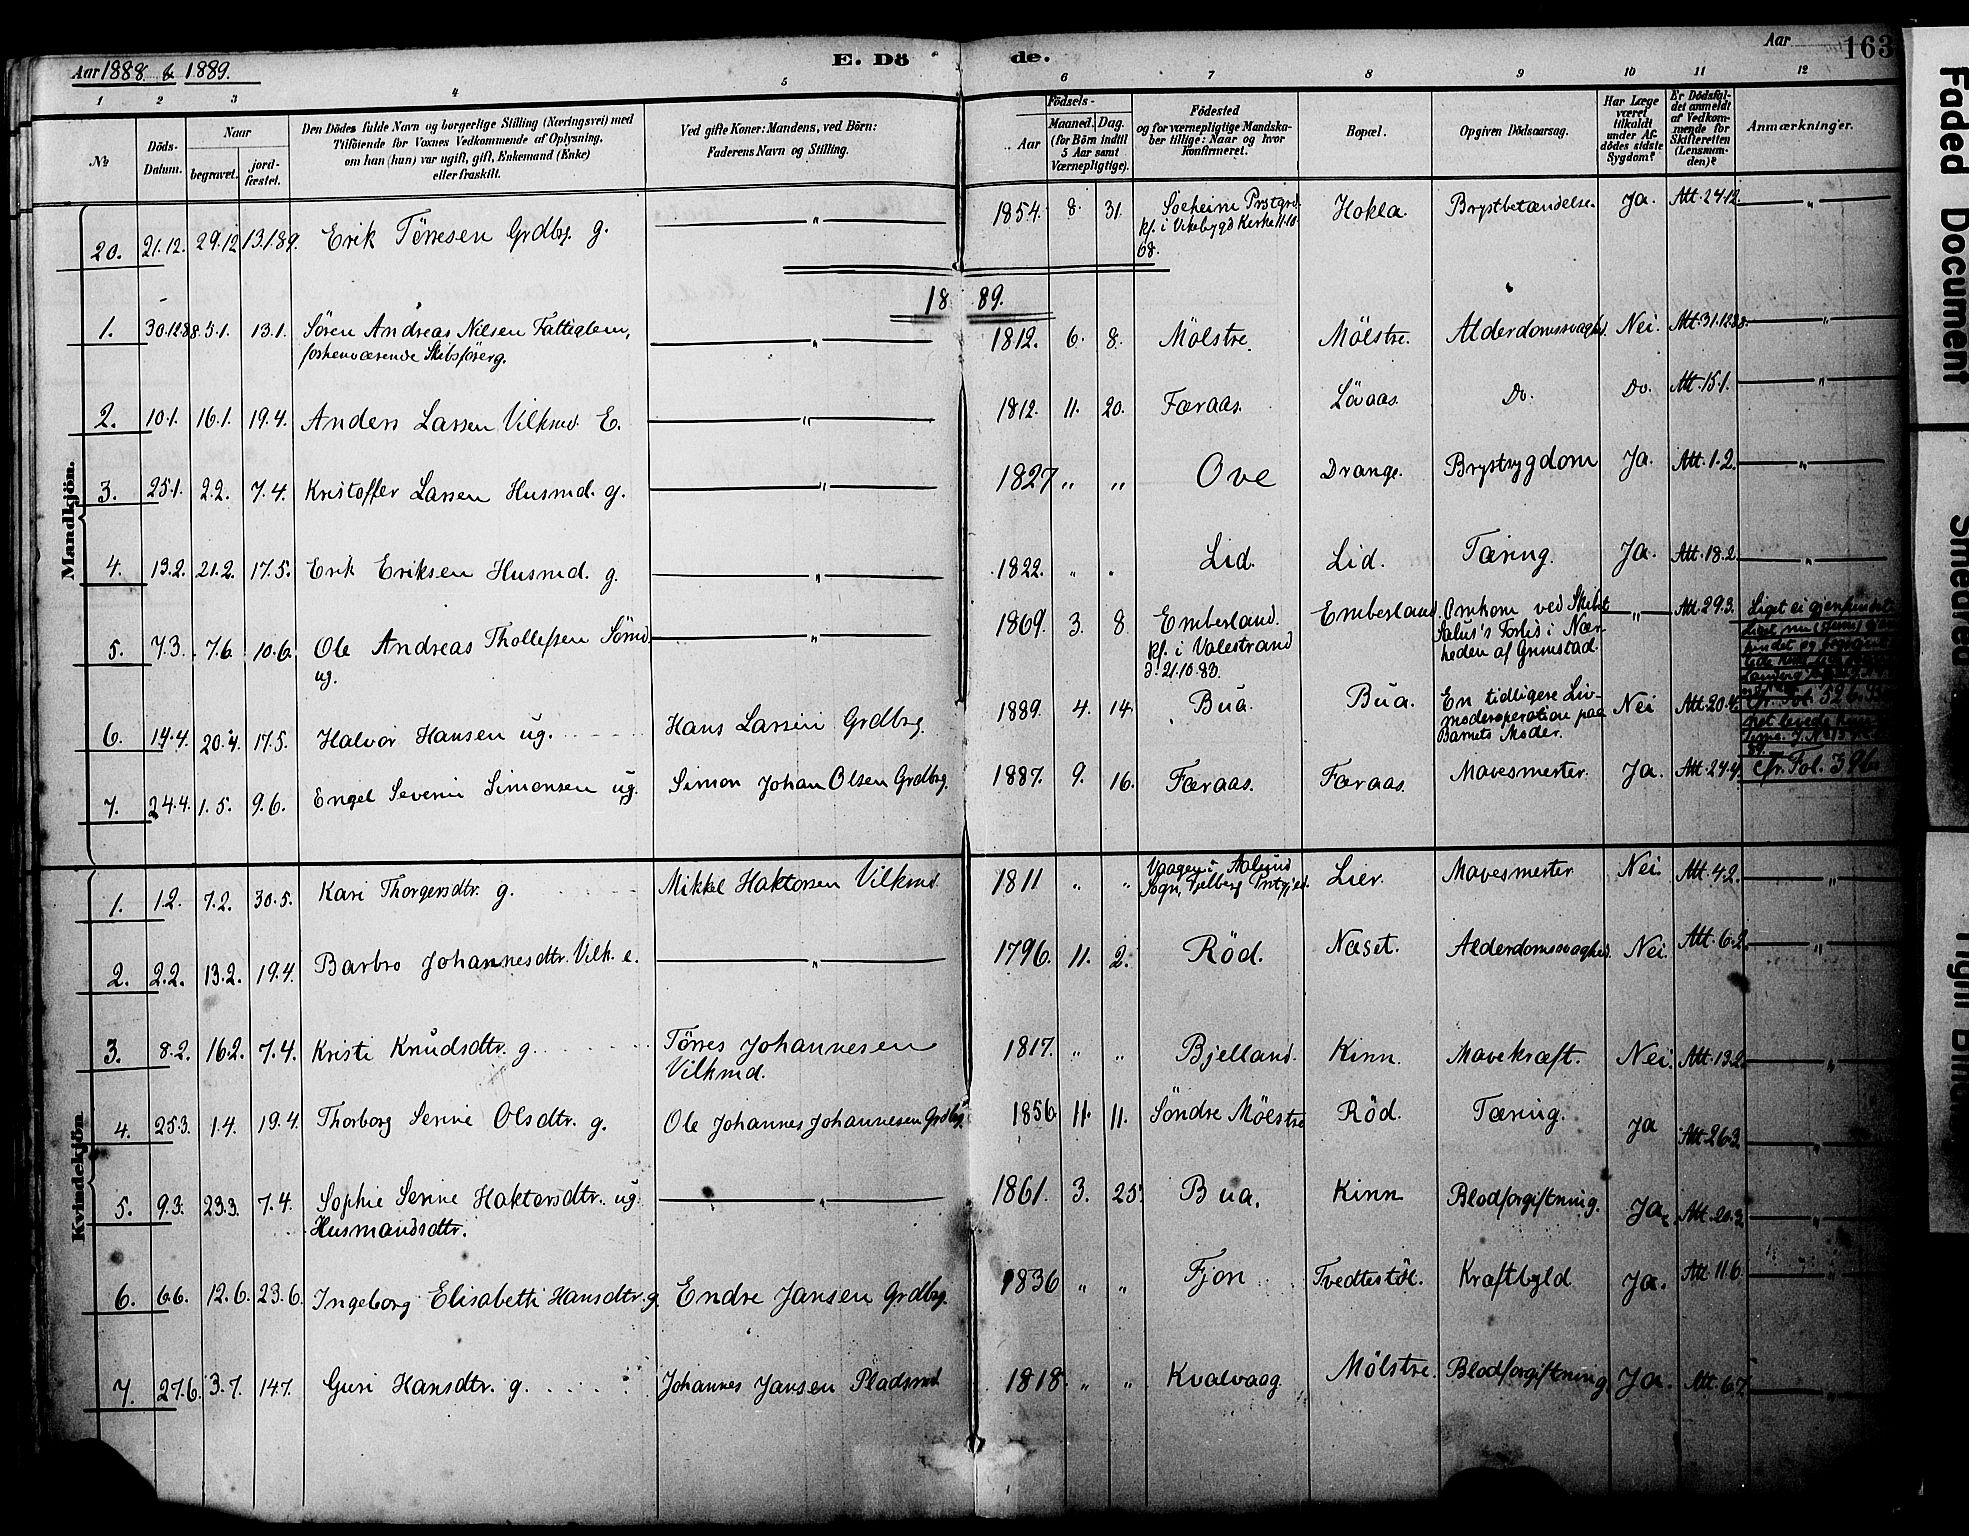 Aar 1888 & 1889.
E. Dö de.
Aar 163
1 2 3 4 5 6 7 8 9 10 11 12
No
Döds-Datum.
Naar
begravet.
jord-fæstet.
Den Dödes fulde Navn og borgerlige Stilling (Næringsvei) med
Tilföiende for Voxnes Vedkommende af Oplysning,
om han (hun) var ugift, gift, Enkemand (Enke)
eller fraskilt.
Ved gifte Koner: Mandens, ved Börn:
Faderens Navn og Stilling.
Födsels-
Aar
Maaned. Dag.
(for Börn indtil
5 Aar samt
Værnepligtige).
Födested
og for værnepligtige Mandska-
ber tillige: Naar og hvor
konfirmeret.
Bopæl.
Opgiven Dödsaarsag.
Har Læge
været
tilkaldt
under Af-
dödes sidste
Sygdom?
Er Dödsfal-
det anmeldt
af Vedkom-
mende for
Skifteretten
(Lensman-
den)?
Anmærkninger.
Mandkjön.
20. 21.12. 29.12 13.1.89. Erik Törresen Grdbg. g. " 1854. 8. 31. Soeheim Prstgrd.
kf. i Vikebygd Kirke
68. Hokla. Brystbetændelse. Ja. Att. 27.12. "
1889.
1. 30.12.88. 5.1. 13.1. Sören Andreas Nilsen Fattiglem,
forhenværende Skibsförerg. " 1812. 6. 8. Mölstre. Mölstre. Alderdomssvaghed. Nei. Att. 31.12.88. "
2. 10.1. 16.1. 19.4. Anders Larsen Vilkmd. E. " 1812. 11. 20. Færaas. Lövaas. Do. Do. Att. 15.1. "
3. 25.1. 2.2. 7.4. Kristoffer Larsen Husmd. g. " 1827 " " Ove Drange. Brystsygdom Ja. Att. 1.2. "
4. 13.2. 21.2. 17.5. Erik Eriksen Husmd. g. " 1822. " " Lid. Lid. Tæring. Ja. Att. 18.2. "
5. 7.3. 7.6. 10.6. Ole Andreas Thollefsen Sömd.
ug. " 1869. 3. 8. Emberland.
kf. i Valestrand
d. 21.10.83. Emberland. Omkom ved Skibet
Salus's Forlis i Nær-
heden af Grimstad. " Att. 29.3. Liget ei gjenfundet.
6. 14.4. 20.4. 17.5. Halvor Hansen ug. Hans Larsen Grdbrg. 1889. 4. 14. Bua. Bua. En tidligere Liv-
moderoperation paa
Barnets Moder. Nei Att. 20.4.
7. 24.4. 1.5. 9.6. Engel Severin Simonsen ug. Simon Johan Olsen Grdbrg. 1887. 9. 16. Færaas. Færaas. Mavesmerter. Ja. Att. 27.4. cfr. Fol. 396
Kvindekjön
1. 1.2. 7.2. 30.5. Kari Thorgersdtr. g. Mikkel Haktorsen Vilkmd. 1811 " " Vaagen i Aalund
Sogn, Fjelberg Prstgjed. Lier. Mavesmerter Nei. Att. 4.2. "
2. 2.2. 13.2. 19.4. Barbro Johannesdtr. Vilk. e. " 1796. 11. 2. Röd. Næset. Alderdomssvaghed. Nei. Att. 6.2. "
3. 8.2. 16.2. 7.4. Kristi Knudsdtr. g. Törres Johannesen
Vilkmd. 1817. " " Bjelland. Kinn. Mavekræft. Nei. Att. 13.2. "
4. 25.3. 1.4. 19.4. Thorborg Serine Olsdtr. g. Ole Johannes Johannesen Grdbg. 1856 11. 11. Söndre Mölstre Röd. Tæring. Ja Att. 26.3. "
5. 9.3. 23.3. 7.4. Sophie Serine Haktorsdtr. ug.
Husmandsdtr. " 1861. 3. 25. Bua. Kinn Blodforgiftning. Ja. Att. 20.3. "
6. 6.6. 12.6. 23.6. Ingeborg Elisabeth Hansdtr. g Endre Jansen Grdbg. 1836 " " Fjon Tvedtestöl. Kræftbyld Ja. Att. 11.6. "
7. 27.6. 3.7. 14.7. Guri Hansdtr. g. Johannes Jansen Pladsmd. 1818. " " Kvalvaag Mölstre. Blodforgiftning Ja. Att. 6.7. "
Faded Document
Smeared
Tight Bin